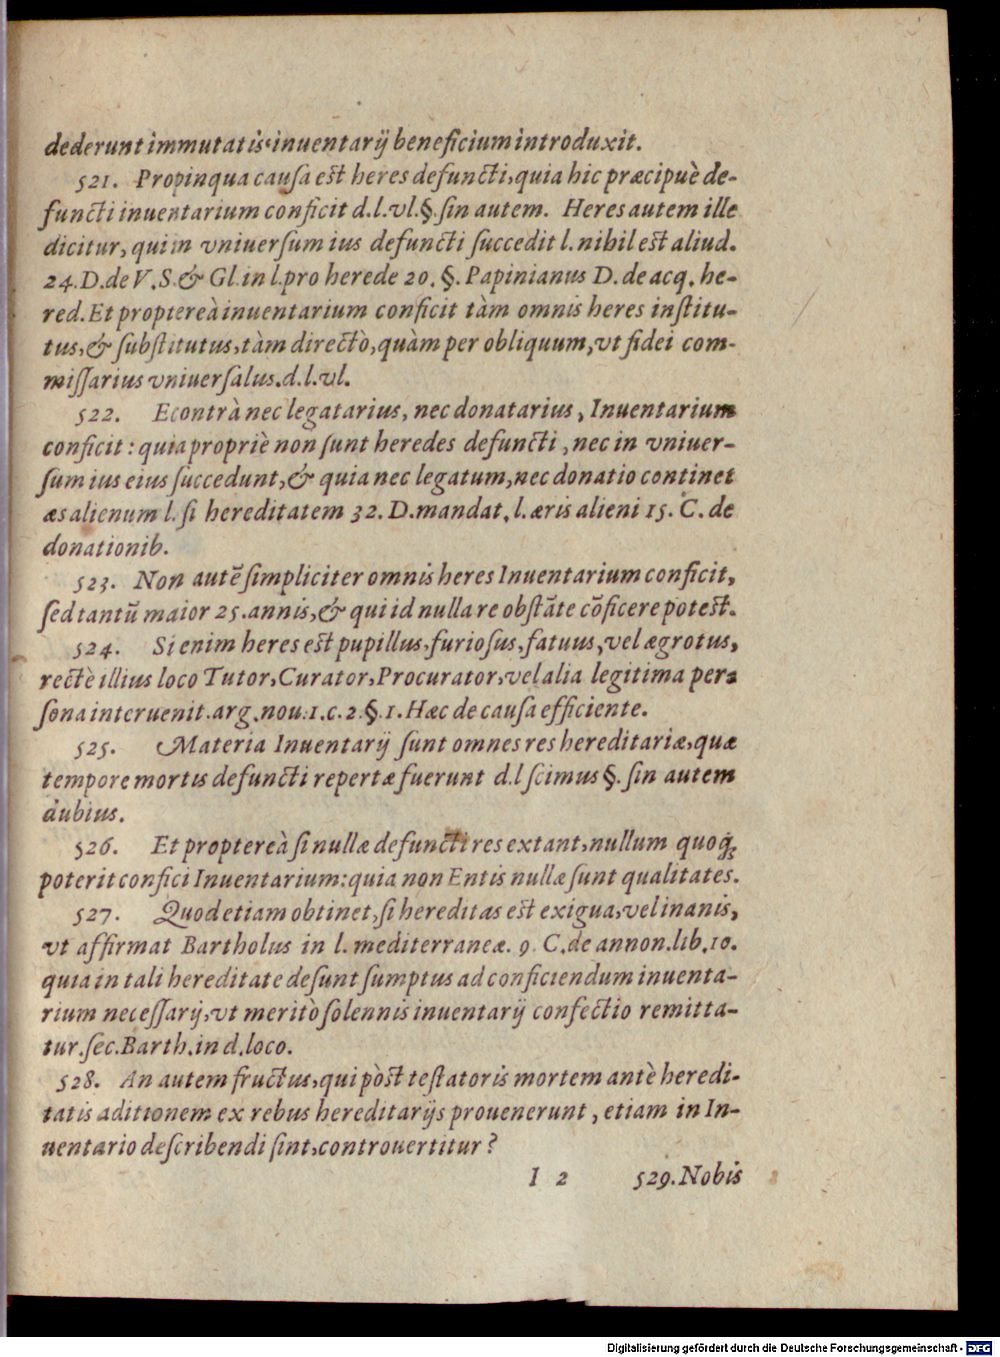 dederunt immutatis inuentarij beneficium introduxit.
521. Propinqua cauſa eſt heres defuncti, quia hic præcipuè de-
functi inuentarium conficit d.l.vl.§. ſin autem. Heres autem ille
dicitur, qui in vniuerſum ius defuncti ſuccedit l. nihil eſt aliud.
24. D. de V. S. & Gl. in l. pro herede 20. §. Papinianus D. de acq. he-
red. Et proptereà inuentarium conficit tàm omnis heres inſtitu-
tus, & ſubſtitutus, tàm directò, quàm per obliquum, vt fidei com-
miſſarius vniuerſalus. d.l.vl.
522. Econtrà nec legatarius, nec donatarius, Inuentarium
conficit: quia propriè non ſunt heredes defuncti, nec in vniuer-
ſum ius eius ſuccedunt, & quia nec legatum, nec donatio continet
æs alienum l. ſi hereditatem 32. D. mandat. l. æris alieni 15. C. de
donationib.
523. Non autē ſimpliciter omnis heres Inuentarium conficit,
ſed tantū maior 25. annis, & qui id nulla re obſtāte cōficere poteſt.
524. Si enim heres eſt pupillus, furioſus, fatuus, vel ægrotus,
rectè illius loco Tutor, Curator, Procurator, vel alia legitima per-
ſona interuenit. arg. nou. 1. c. 2. §. 1. Hæc de cauſa efficiente.
525. Materia Inuentarij ſunt omnes res hereditariæ, quæ
tempore mortis defuncti repertæ fuerunt d. l ſcimus §. ſin autem
dubius.
526. Et proptereà ſi nullæ defuncti res extant, nullum quoq́;
poterit confici Inuentarium: quia non Entis nullæ ſunt qualitates.
527. Quod etiam obtinet, ſi hereditas eſt exigua, vel inanis,
vt affirmat Bartholus in l. mediterraneæ. 9. C. de annon. lib. 10.
quia in tali hereditate deſunt ſumptus ad conficiendum inuenta-
rium neceſſarij, vt meritò ſolennis inuentarij confectio remitta-
tur. ſec. Barth. in d. loco.
528. An autem fructus, qui pòſt teſtatoris mortem antè heredi-
tatis aditionem ex rebus hereditarijs prouenerunt, etiam in In-
uentario deſcribendi ſint, controuertitur?
I 2 529. Nobis
Digitalisierung gefördert durch die Deutsche Forschungsgemeinschaft - DFG